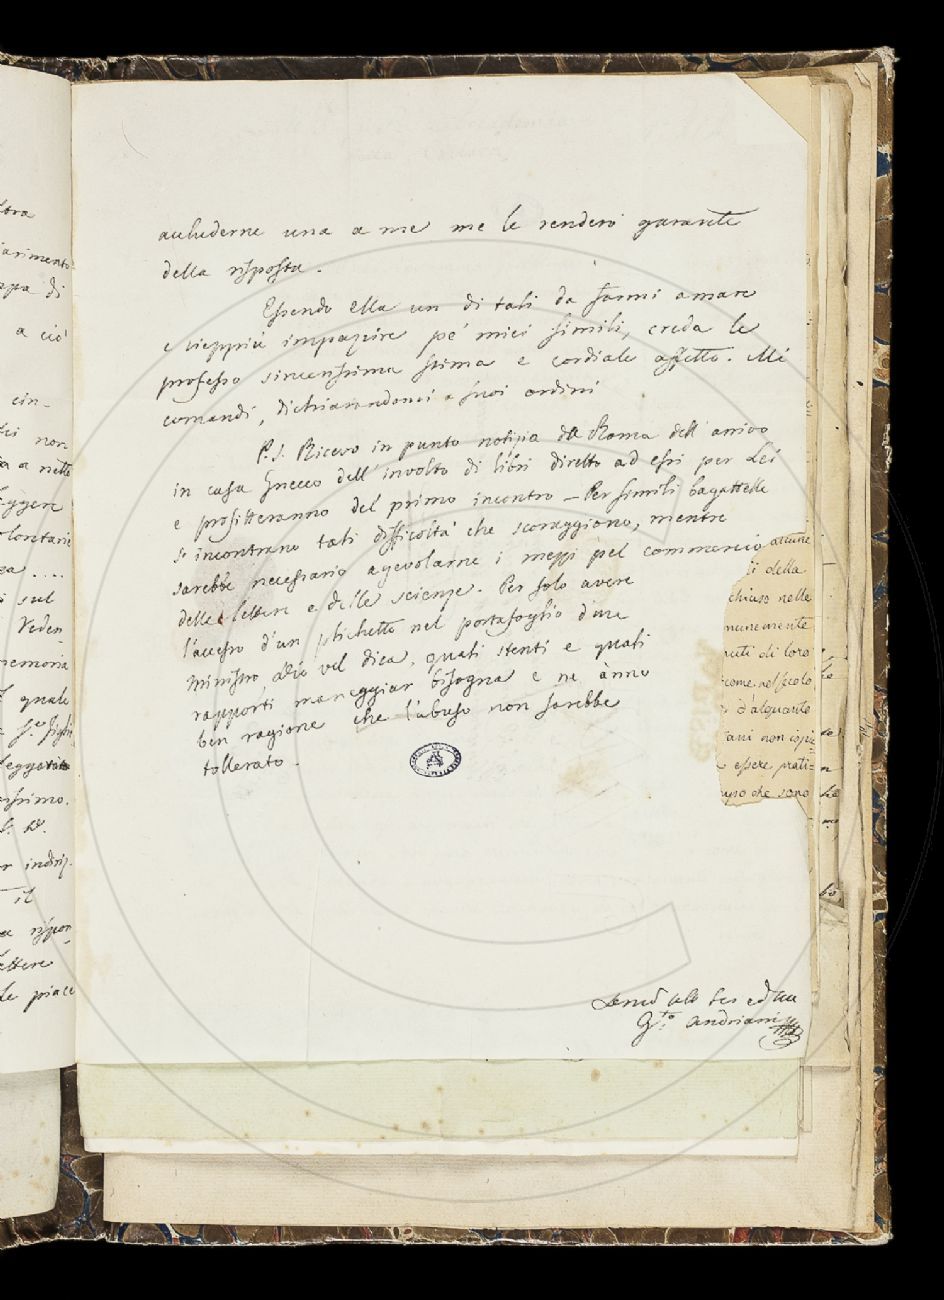 accluderne una a me me le renderò garante
della risposta.
Essendo ella un di tali da farmi amare
e vieppiù impazzire pe' miei simili, creda le
professo sincerissima stima e cordiale affetto. Mi
comandi, dichiarandomi a suoi ordini
P.S. Ricevo in punto notizia da Roma dell' arrivo
in casa Gnecco dell' involto di libri diretto ad essi per Lei
e profitteranno del primo incontro – Per simili bagattelle
s' incontrano tali difficoltà che scoraggiono, mentre
sarebbe necessario agevolarne i mezzi pel commercio
delle lettere e delle scienze. Per solo avere
l'accesso d'un plichetto nel portafoglio d'un
ministro dio vel dica, quali stenti e quali
rapporti maneggiar bisogna e ne ànno
ben ragione che l'abuso non sarebbe
tollerato.
G.to Andriani
arimento
a ciò
cin-
lei non
a nette
eggere
olontarie
sul
Veden-
memoria
quale
leggete
issimo.
r indriz-
il
rispon
lettere
le piace
alcune
i della
chiuso nelle
munemente
nuti di loro
come nel secolo
d'alquante
tani non copi=
essere prati=
uso che sono